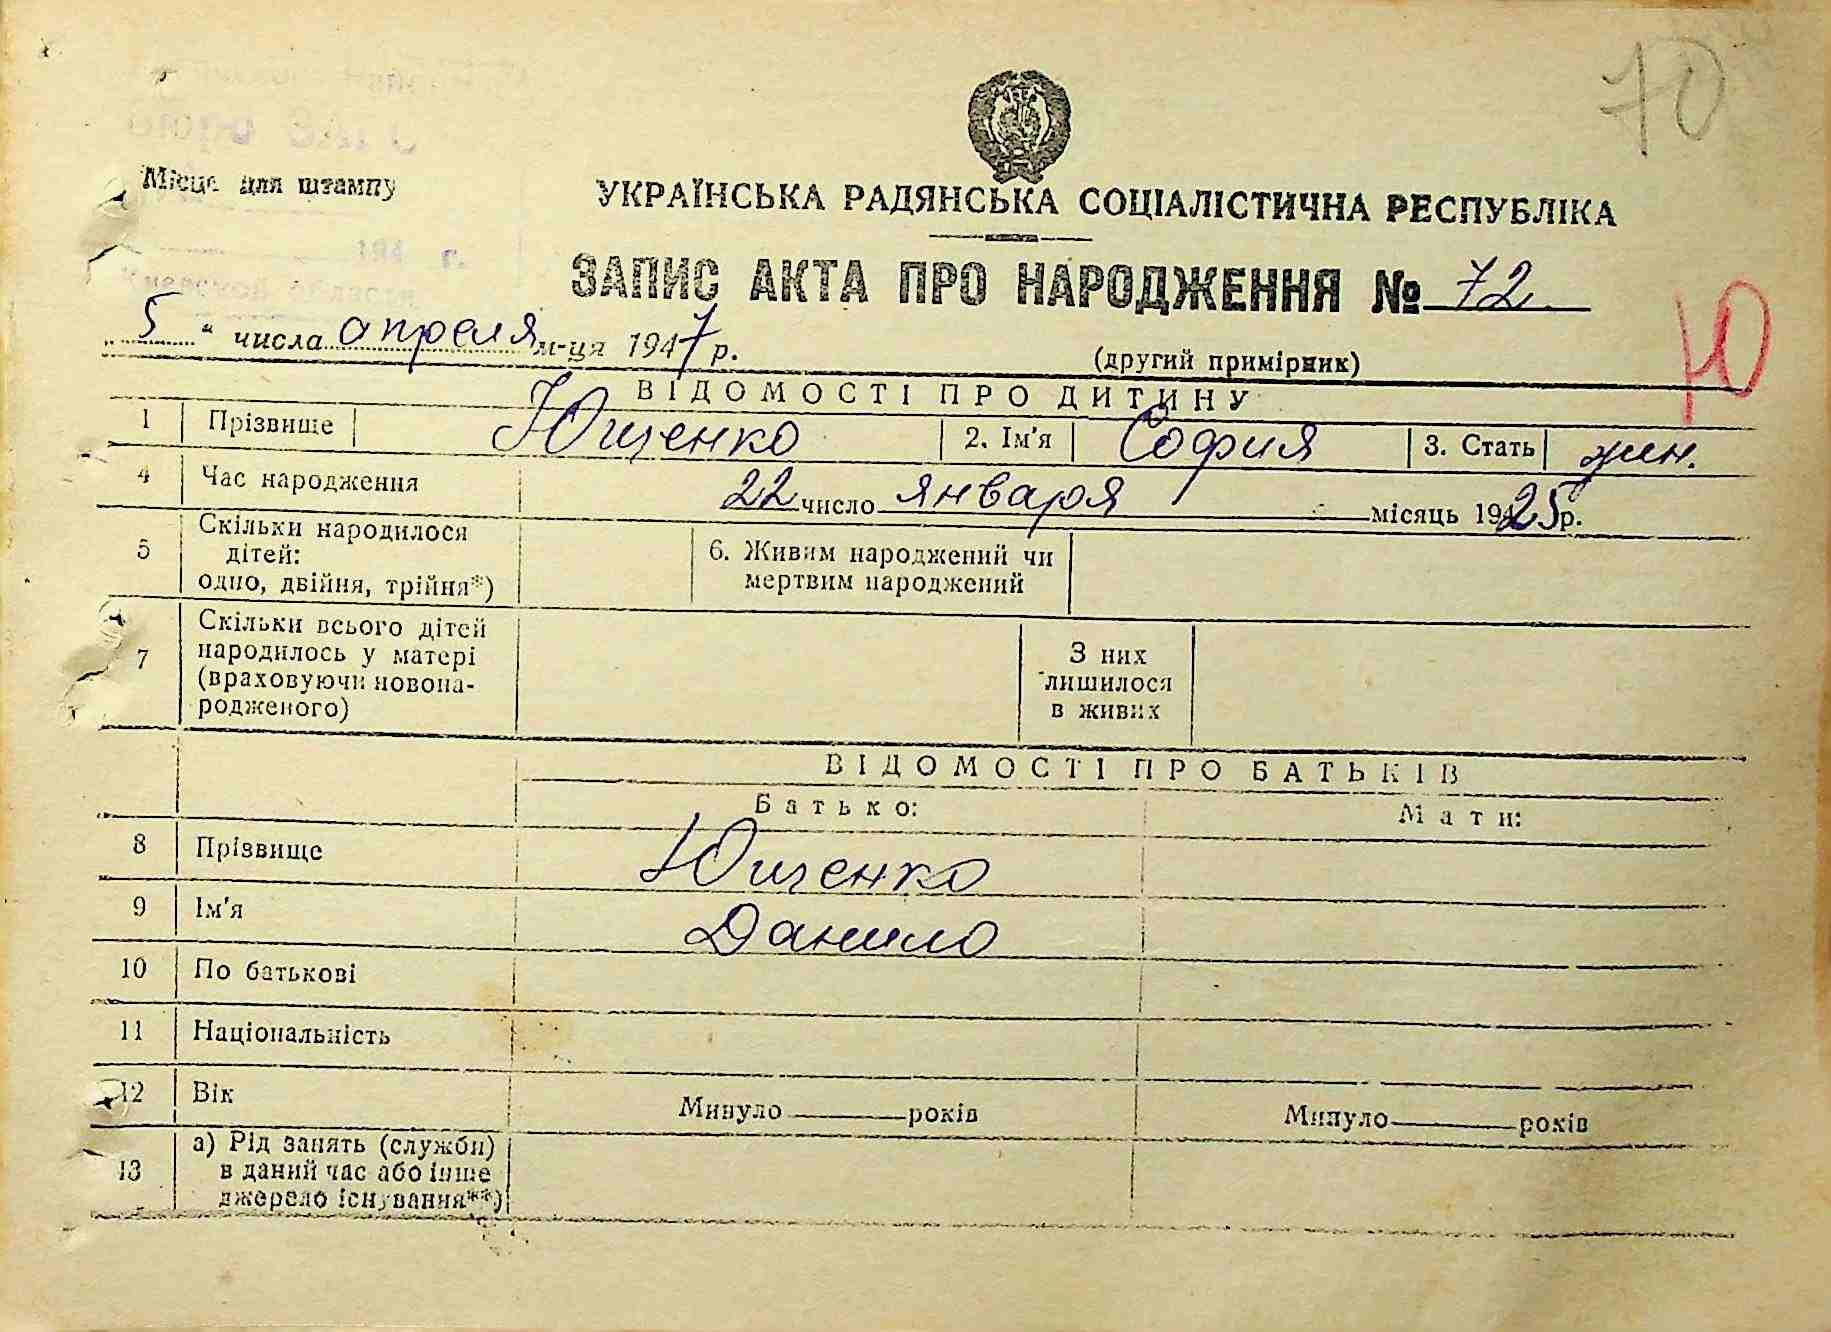 70
Місце для штампу
УКРАЇНСЬКА РАДЯНСЬКА СОЦІАЛІСТИЧНА РЕСПУБЛІКА
ЗАПИС АКТА ПРО НАРОДЖЕННЯ № 72
„ 5 “ числа апреля м-ця 1947 р.
(другий примірник)
Ю
ВІДОМОСТІ ПРО ДИТИНУ
1 Прізвище Ющенко 2. Ім'я София 3. Стать жен.
4 Час народження 22 число января місяць 1925 р.
5 Скільки народилося
дітей:
одно, двійня, трійня*)
6. Живим народжений чи
мертвим народжений
7 Скільки всього дітей
народилось у матері
(враховуючи новона-
родженого)
З них
лишилося
в живих
ВІДОМОСТІ ПРО БАТЬКІВ
Батько: Мати:
8 Прізвище Ющенко
9 Ім'я Данило
10 По батькові
11 Національність
12 Вік Минуло років Минуло років
13 а) Рід занять (служби)
в даний час або інше
джерело існування**)